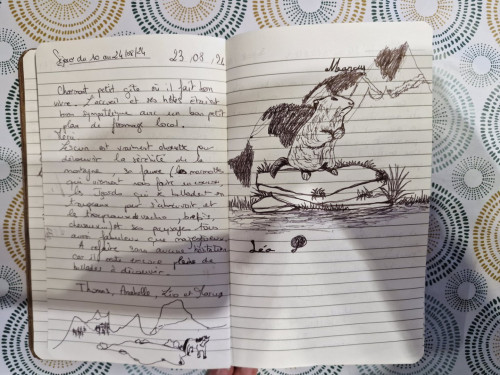 Séjour du 10 au 24/08/24
23.08.24
Charmant petit gîte où il fait bon
vivre. L'accueil et ses hôtes étaient
bien sympathique avec un bon petit
plan de fromage local.
Léa :
est vraiment chouette pour
découvrir la sérénité de la
montagne, sa faune (les marmottes
qui viennent nous faire un coucou
dans le jardin, les
troupeaux pour s'abreuvoir et
le troupeau de vaches, brebis,
chevaux) et ses paysages tous
aussi fabuleux que majestueux.
A refaire sans aucune hésitation
car il reste encore pleins de
balades à découvrir.
Thomas, Anabelle, Léa et
Léa